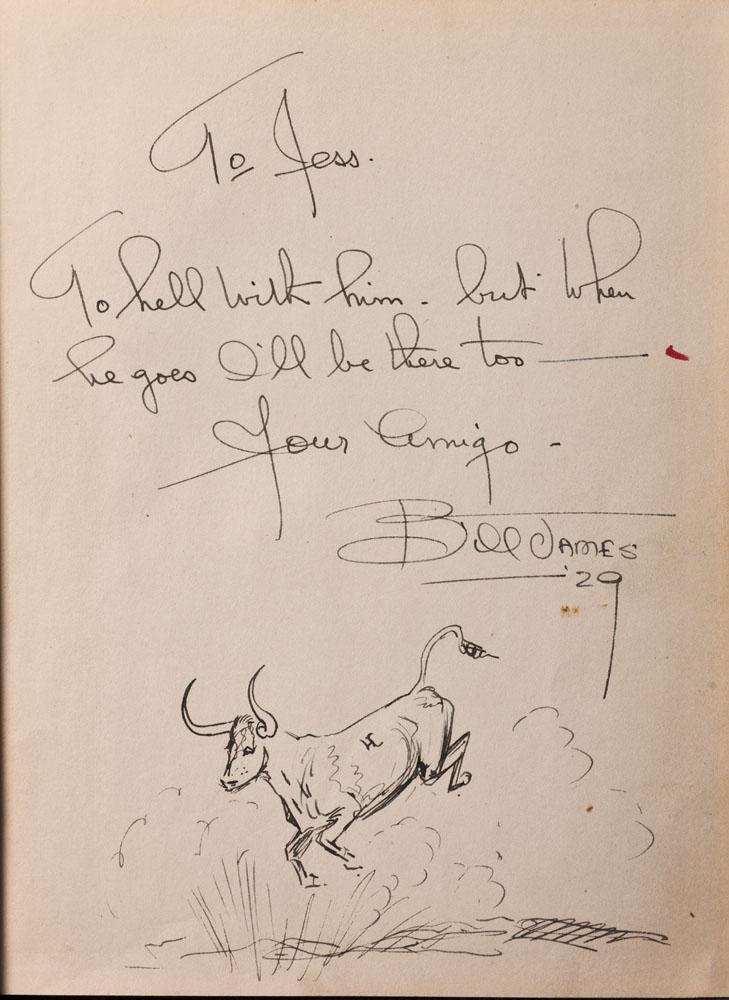 To Jess.
To hell with him - but when
he goes I'll be there too —
Your Amigo -
Bill James
'29